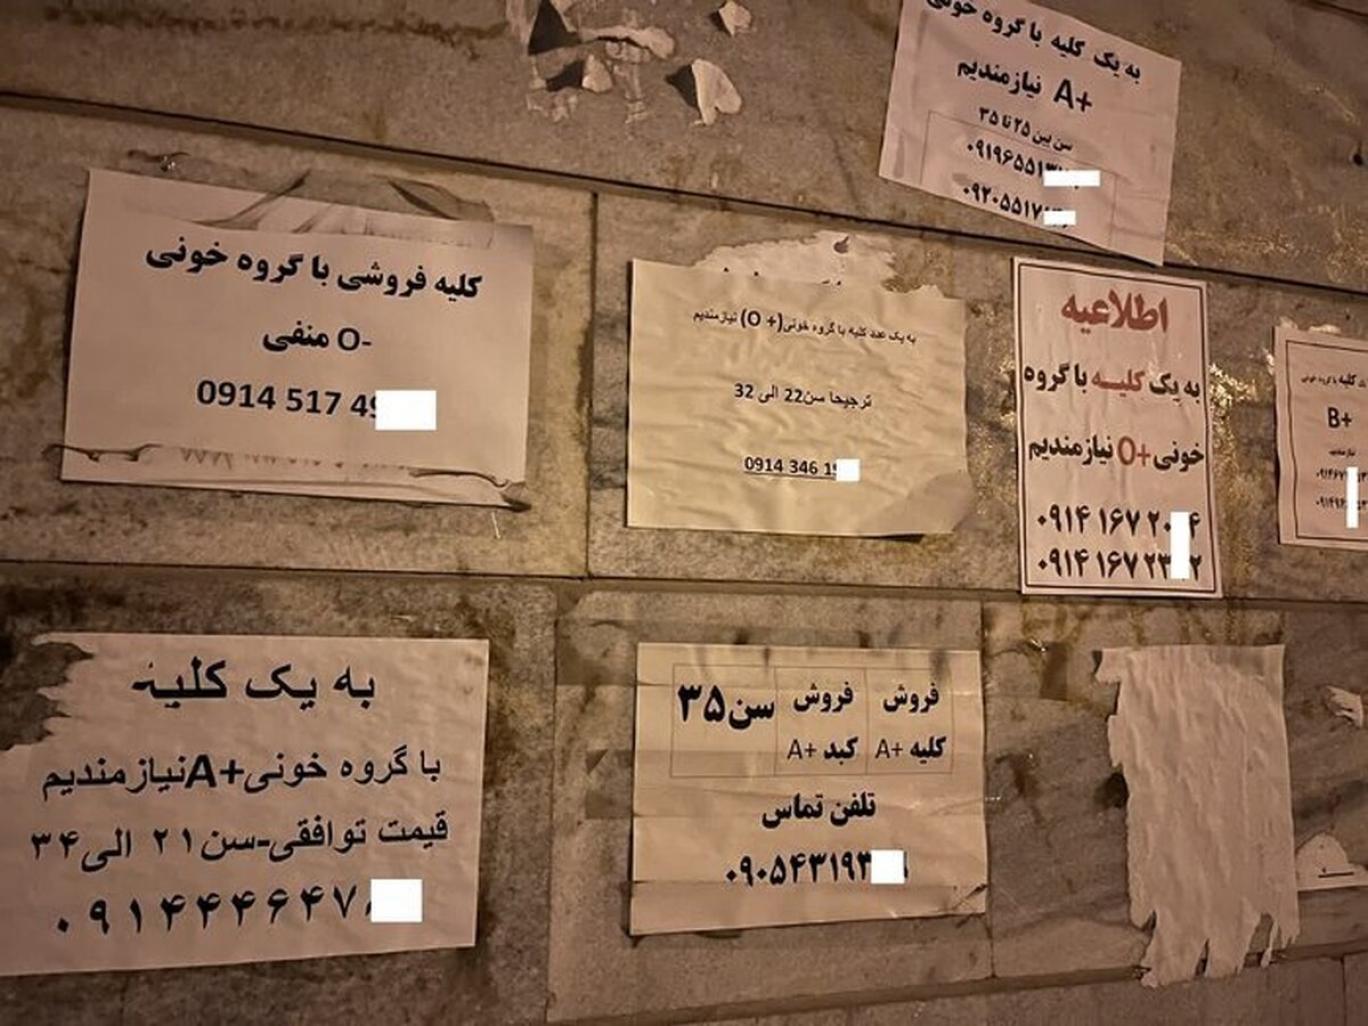 به یک کلیه با گروه خونی
A+ نیازمندیم
سن بین ۲۵ تا ۳۵
۰۹۱۹۶۵۵۱
۰۹۲۰۵۵۱۷
کلیه فروشی با گروه خونی
O- منفی
0914 517 4
به یک عدد کلیه با گروه خونی(O +) نیازمندیم
ترجیحا سن22 الی 32
0914 346 1
اطلاعیه
به یک کلیــه با گروه
خونی O+ نیازمندیم
۰۹۱۴ ۱۶۷ ۲۰ ۴
۰۹۱۴ ۱۶۷ ۲۳ ۲
کلیه با گروه خونی
B+
نیازمندیم
به یک کلیه
با گروه خونی A+نیازمندیم
قیمت توافقی-سن۲۱ الی۳۴
۰۹۱۴۴۴۶۴۷
فروش کلیه A+
فروش کبد A+
سن۳۵
تلفن تماس
۰۹۰۵۴۳۱۹۳